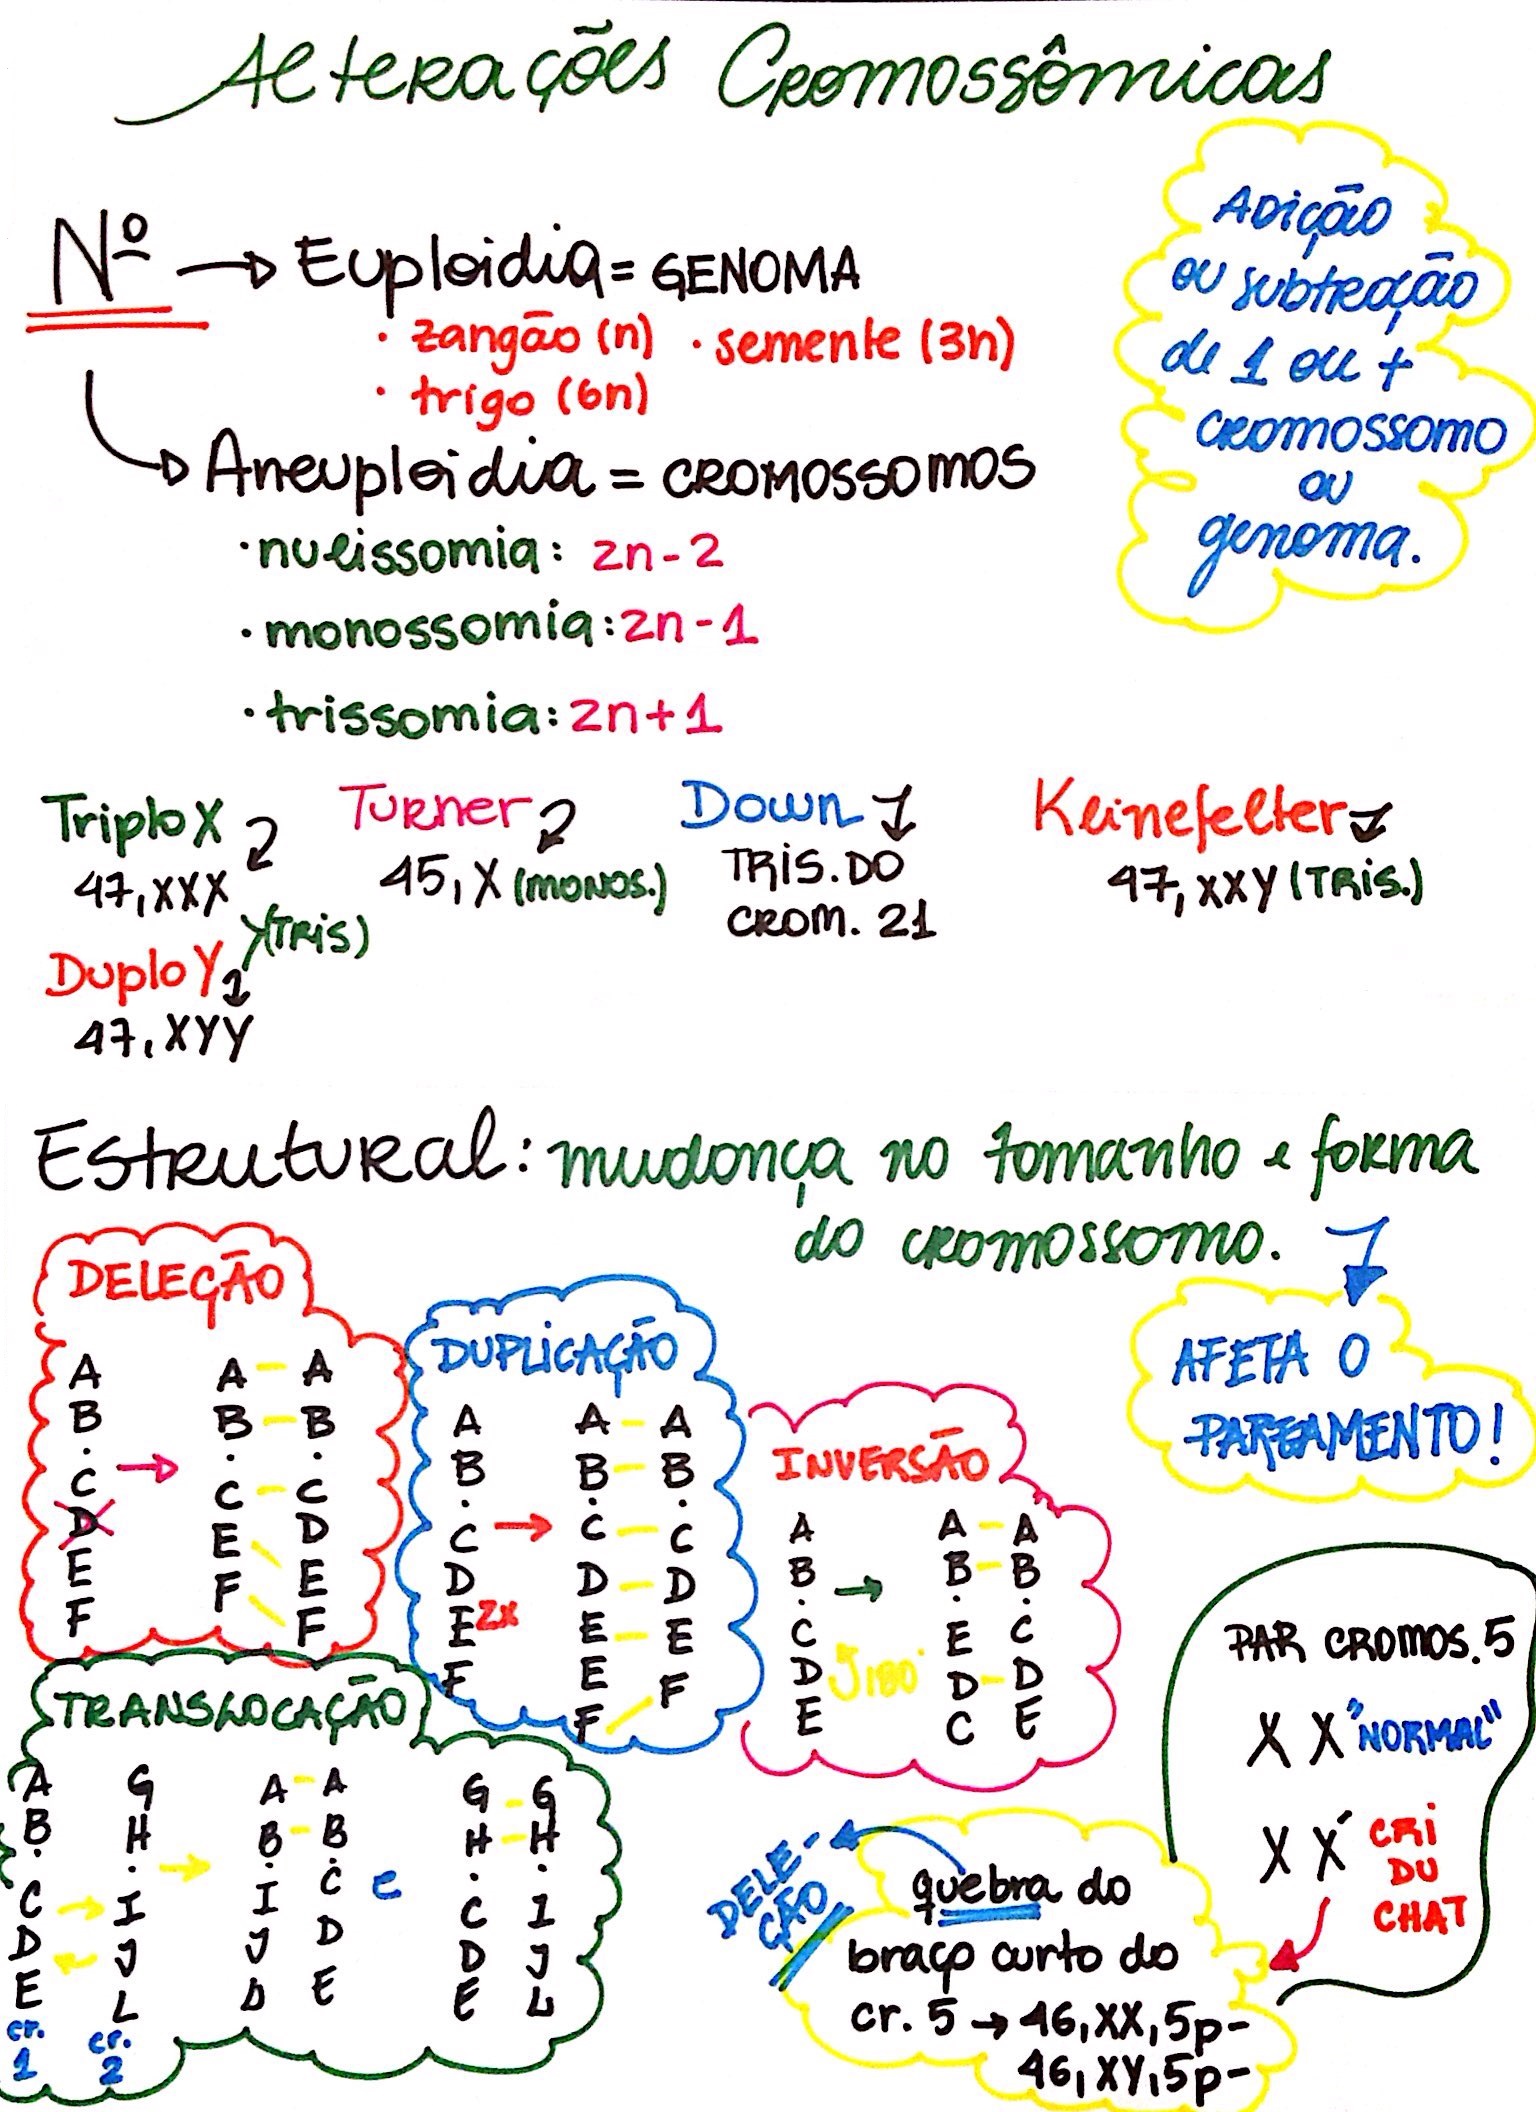 Alterações Cromossômicas
Nº → Euploidia = GENOMA
· zangão (n) · semente (3n)
· trigo (6n)
Aneuploidia = CROMOSSOMOS
· nulissomia: 2n-2
· monossomia: 2n-1
· trissomia: 2n+1
Adição
ou subtração
de 1 ou +
cromossomo
ou
genoma.
Triplo X
47,XXX
(TRIS)
Duplo Y
47,XYY
Turner
45,X (MONOS.)
Down
TRIS. DO
CROM. 21
Kleinefelter
47, XXY (TRIS.)
Estrutural: mudança no tamanho e forma
do cromossomo.
AFETA O
PAREAMENTO!
DELEÇÃO
A A – A
B B – B
· · ·
C → C – C
D E D
E F E
F F
DUPLICAÇÃO
A A – A
B B – B
· · ·
C → C – C
D D – D
E 2x E – E
F E F
F
INVERSÃO
A A – A
B → B – B
· · ·
C E C
D D – D
E C E
180°
TRANSLOCAÇÃO
A G A – A G – G
B H B – B H – H
· · → · · · ·
C → I I C e C I
D ← J J D D J
E L L E E L
cr. cr.
1 2
PAR CROMOS. 5
X X "NORMAL"
X X´ CRI
DU
CHAT
DELE-
ÇÃO
quebra do
braço curto do
cr. 5 → 46,XX,5p-
46,XY,5p-